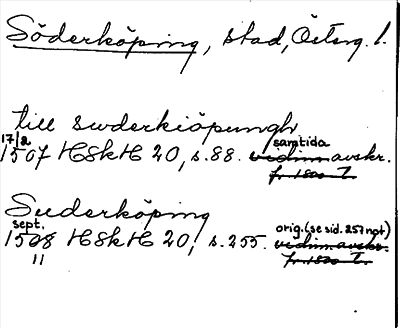 Söderköping, stad, Österg. l.
till swderkiöpungh
17/2 samtida
1507 HSkH 20, s. 88. vidim. avskr.
fr. 1500 T.
Suderköping
sept. orig. (se sid. 257 not)
1508 HSkH 20, s. 255. vidim. avskr.
fr. 1500 T.
11